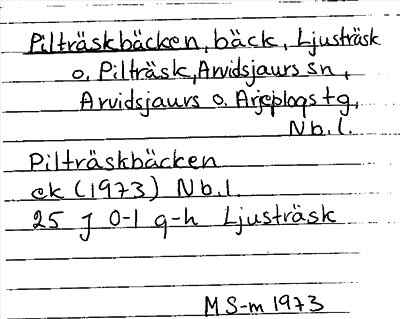 Pilträskbäcken, bäck, Ljusträsk
o. Pilträsk, Arvidsjaurs sn,
Arvidsjaurs o. Arjeplogs tg,
Nb.l.
Pilträskbäcken
ek (1973) Nb.l.
25 J 0-1 g-h Ljusträsk
MS-m 1973